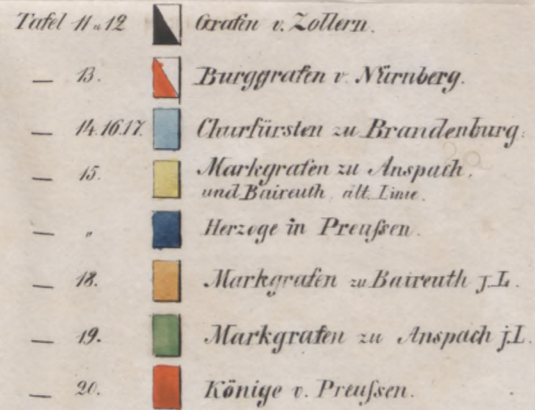 Tafel 11 u 12 Grafen v. Zollern.
— 13. Burggrafen v. Nürnberg.
— 14. 16. 17. Churfürsten zu Brandenburg.
— 15. Markgrafen zu Anspach,
und Baireuth ält. Linie.
— „ Herzoge in Preuſsen.
— 18. Markgrafen zu Baireuth j. L.
— 19. Markgrafen zu Anspach j. L.
— 20. Könige v. Preuſsen.